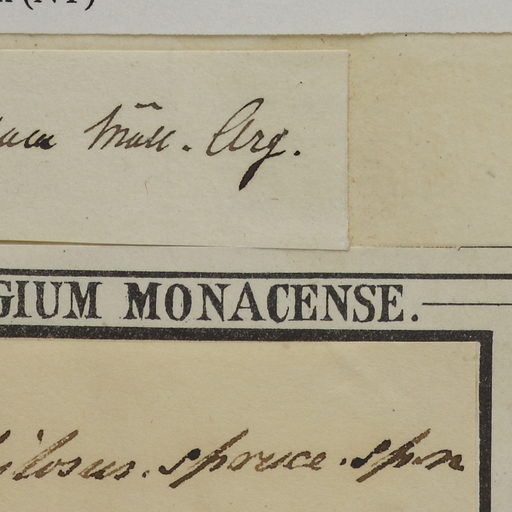 Müll. Arg.
GIUM MONACENSE.
ilosus. spruce. sp. n